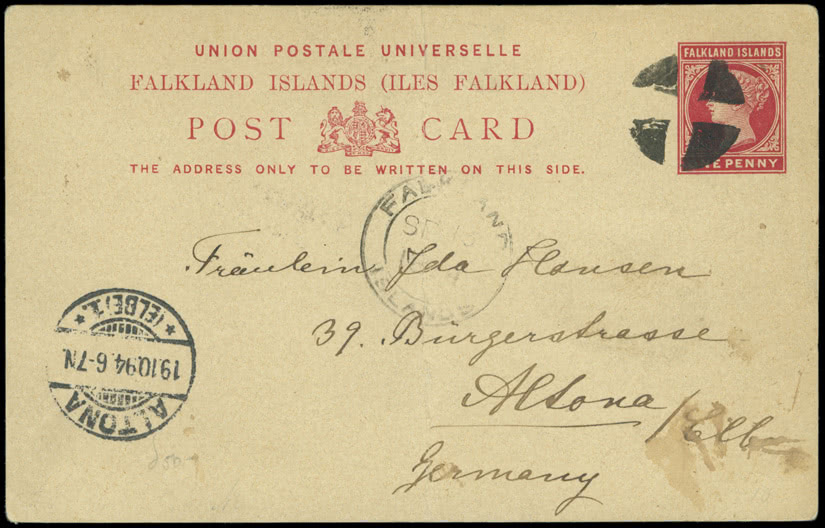 UNION POSTALE UNIVERSELLE
FALKLAND ISLANDS (ILES FALKLAND)
POST CARD
THE ADDRESS ONLY TO BE WRITTEN ON THIS SIDE.
FALKLAND ISLANDS
ONE PENNY
FALKLAND
ISLANDS
Fräulein Ida Hansen
39. Bürgerstrasse
Altona / Elbe
Germany
ALTONA
19.10.94.6-7N.
* (ELBE) 1. *